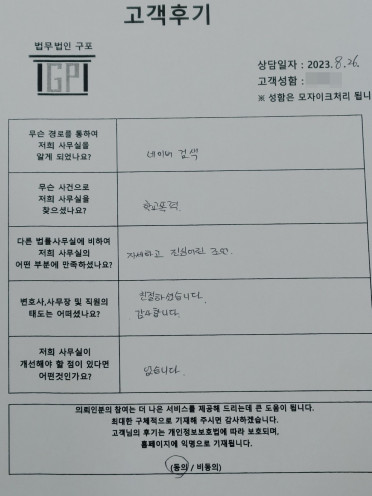 고객후기
법무법인 구포
GP
상담일자 : 2023. 8. 26.
고객성함 :
※ 성함은 모자이크처리 됩니
무슨 경로를 통하여
저희 사무실을
알게 되었나요?
네이버 검색
무슨 사건으로
저희 사무실을
찾으셨나요?
학교폭력
다른 법률사무실에 비하여
저희 사무실의
어떤 부분에 만족하셨나요?
자세하고 진심어린 조언.
변호사,사무장 및 직원의
태도는 어떠셨나요?
친절하셨습니다.
감사합니다.
저희 사무실이
개선해야 할 점이 있다면
어떤것인가요?
없습니다.
의뢰인분의 참여는 더 나은 서비스를 제공해 드리는데 큰 도움이 됩니다.
최대한 구체적으로 기재해 주시면 감사하겠습니다.
고객님의 후기는 개인정보보호법에 따라 보호되며,
홈페이지에 익명으로 기재됩니다.
(동의 / 비동의)